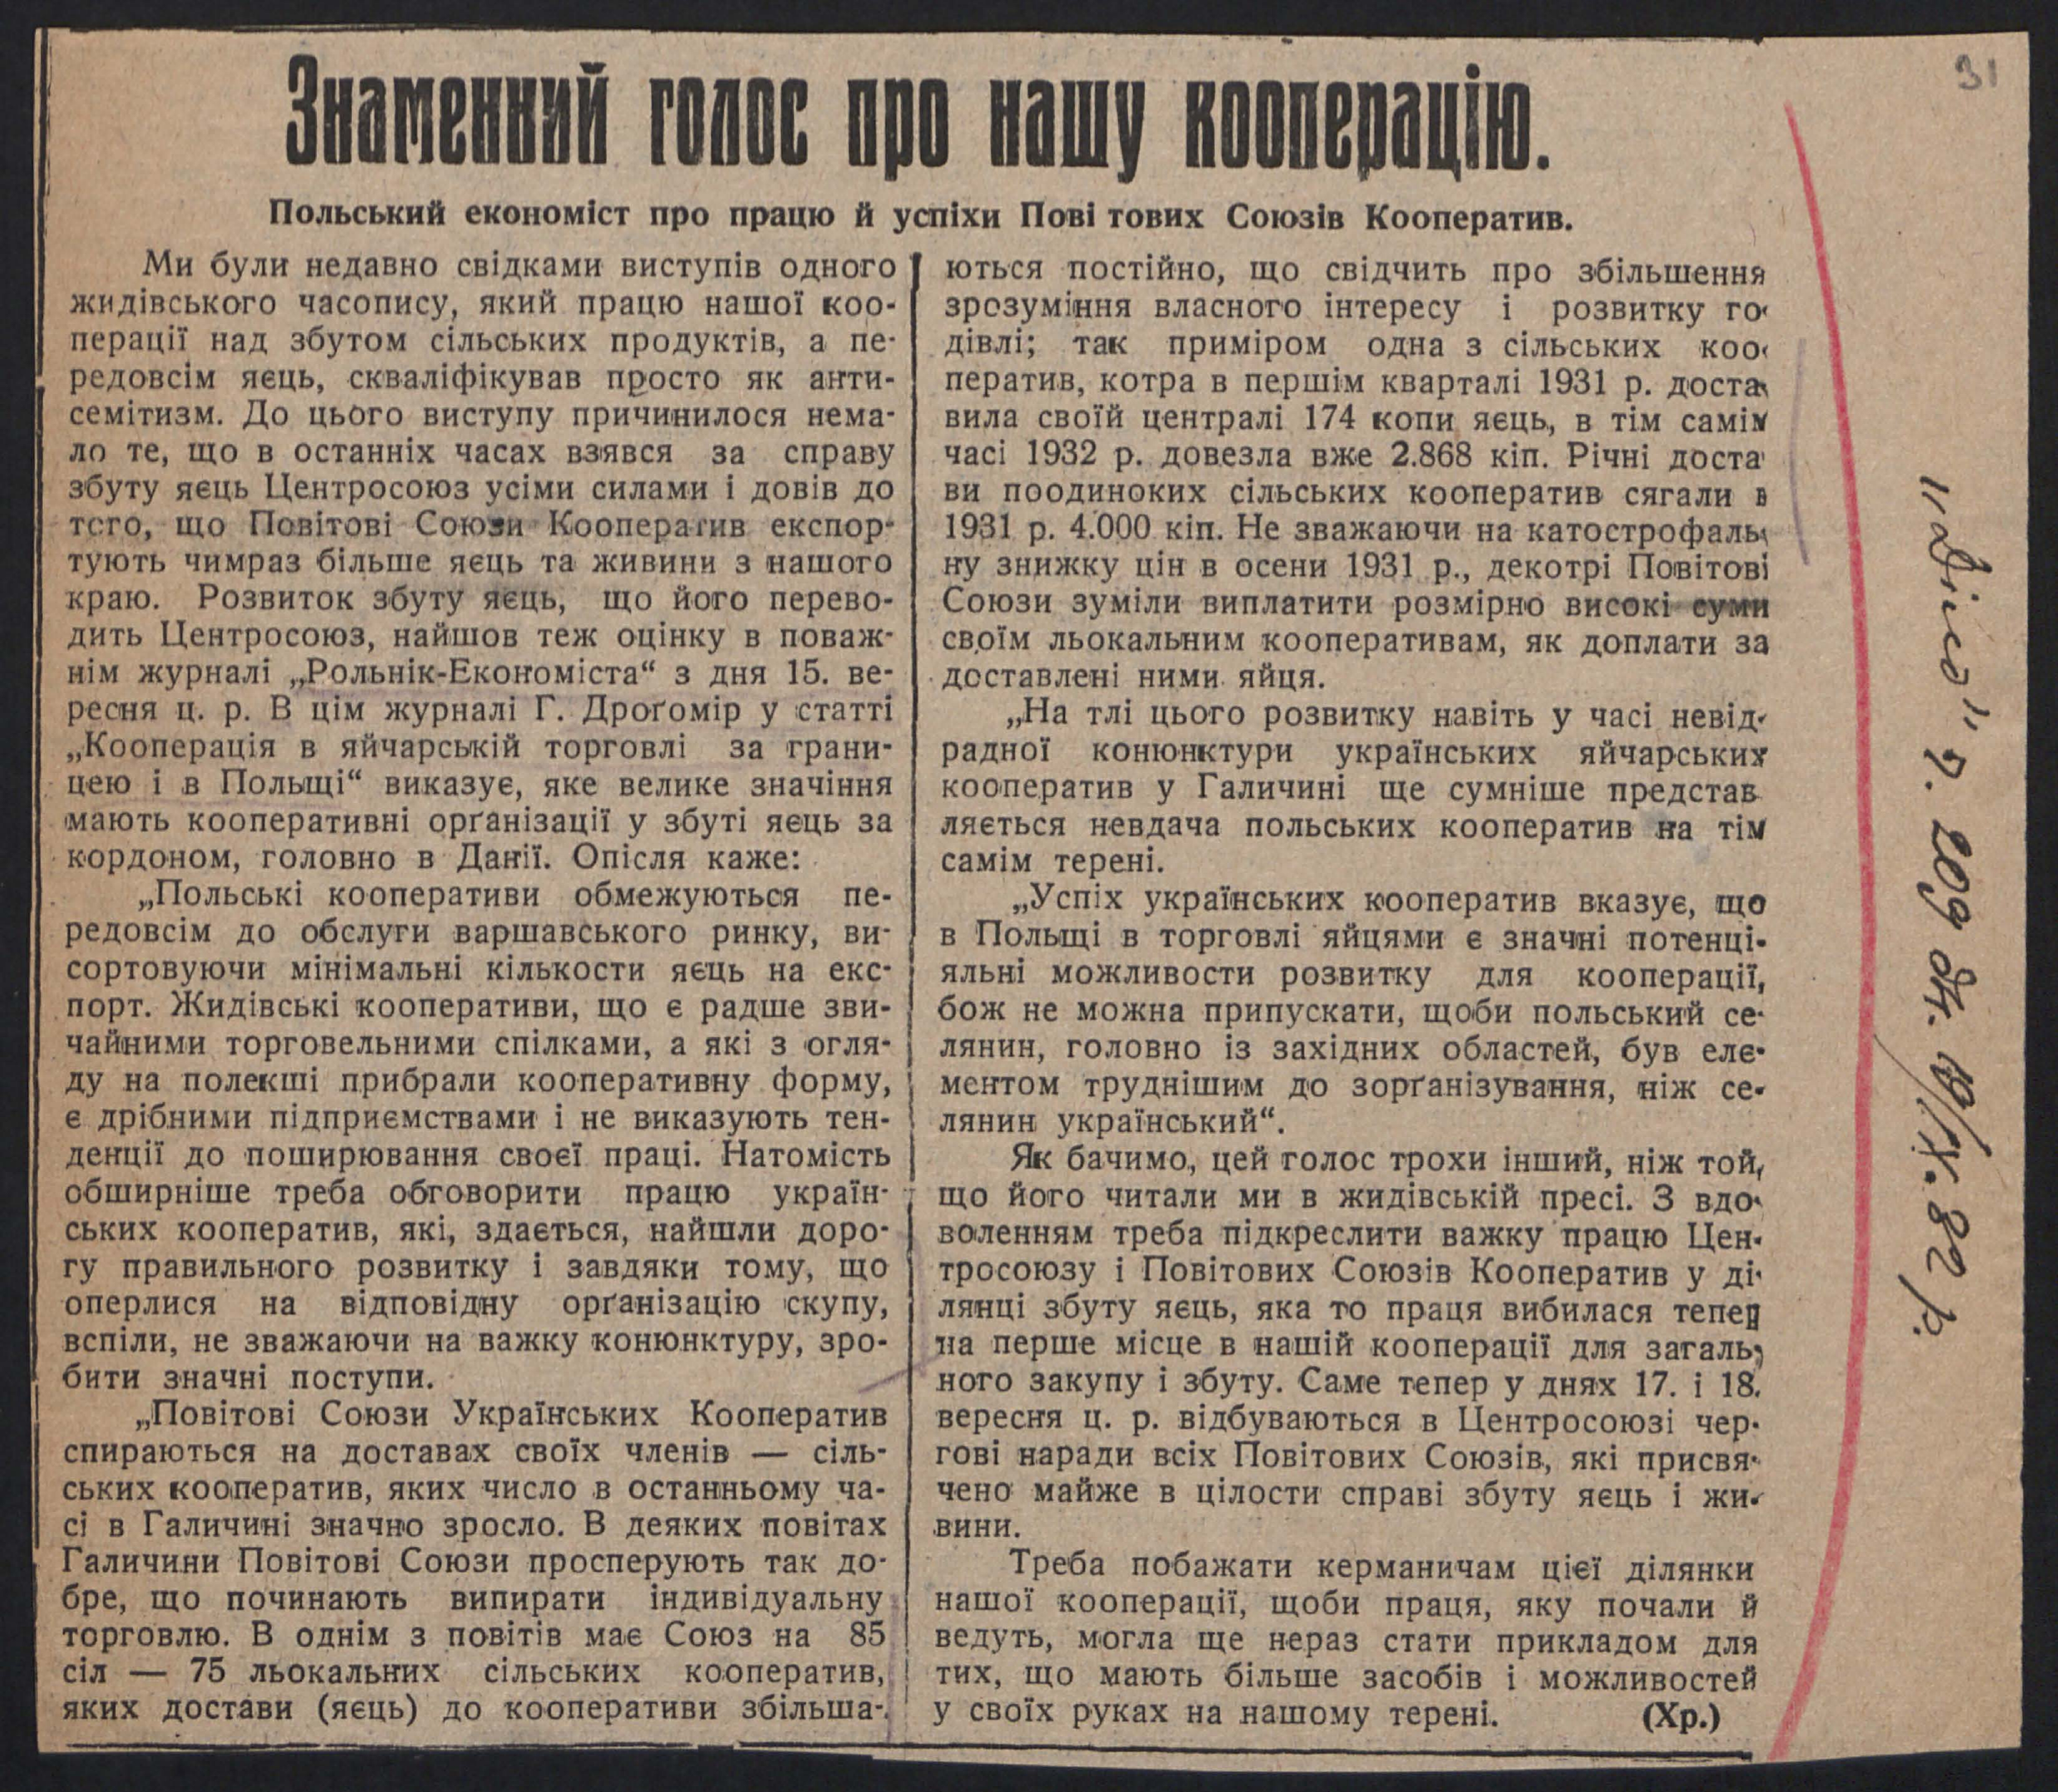 31
Знаменний голос про нашу кооперацію.
Польський економіст про працю й успіхи Пові тових Союзів Кооператив.
Ми були недавно свідками виступів одного
жидівського часопису, який працю нашої коо-
перації над збутом сільських продуктів, а пе-
редовсім яєць, скваліфікував просто як анти-
семітизм. До цього виступу причинилося нема-
ло те, що в останніх часах взявся за справу
збуту яєць Центросоюз усіми силами і довів до
того, що Повітові Союзи Кооператив експор-
тують чимраз більше яєць та живини з нашого
краю. Розвиток збуту яєць, що його перево-
дить Центросоюз, найшов теж оцінку в поваж-
нім журналі „Рольнік-Економіста“ з дня 15. ве-
ресня ц. р. В цім журналі Г. Дроґомір у статті
„Кооперація в яйчарській торговлі за грани-
цею і в Польщі“ виказує, яке велике значіння
мають кооперативні орґанізації у збуті яєць за
кордоном, головно в Данії. Опісля каже:
„Польські кооперативи обмежуються пе-
редовсім до обслуги варшавського ринку, ви-
сортовуючи мінімальні кількости яєць на екс-
порт. Жидівські кооперативи, що є радше зви-
чайними торговельними спілками, а які з огля-
ду на полекші прибрали кооперативну форму,
є дрібними підприємствами і не виказують тен-
денції до поширювання своєї праці. Натомість
обширніше треба обговорити працю україн-
ських кооператив, які, здається, найшли доро-
гу правильного розвитку і завдяки тому, що
оперлися на відповідну орґанізацію скупу,
вспіли, не зважаючи на важку конюнктуру, зро-
бити значні поступи.
„Повітові Союзи Українських Кооператив
спираються на доставах своїх членів — сіль-
ських кооператив, яких число в останньому ча-
сі в Галичині значно зросло. В деяких повітах
Галичини Повітові Союзи просперують так до-
бре, що починають випирати індивідуальну
торговлю. В однім з повітів має Союз на 85
сіл — 75 льокальних сільських кооператив,
яких достави (яєць) до кооперативи збільша-
ються постійно, що свідчить про збільшення
зрозуміння власного інтересу і розвитку го-
дівлі; так приміром одна з сільських коо-
ператив, котра в першім кварталі 1931 р. доста-
вила своїй централі 174 копи яєць, в тім самім
часі 1932 р. довезла вже 2.868 кіп. Річні доста-
ви поодиноких сільських кооператив сягали в
1931 р. 4.000 кіп. Не зважаючи на катострофаль-
ну знижку цін в осени 1931 р., декотрі Повітові
Союзи зуміли виплатити розмірно високі суми
своїм льокальним кооперативам, як доплати за
доставлені ними яйця.
„На тлі цього розвитку навіть у часі невід-
радної конюнктури українських яйчарських
кооператив у Галичині ще сумніше представ-
ляється невдача польських кооператив на тім
самім терені.
„Успіх українських кооператив вказує, що
в Польщі в торговлі яйцями є значні потенці-
яльні можливости розвитку для кооперації,
бож не можна припускати, щоби польський се-
лянин, головно із західних областей, був еле-
ментом труднішим до зорґанізування, ніж се-
лянин український“.
Як бачимо, цей голос трохи інший, ніж той,
що його читали ми в жидівській пресі. З вдо-
воленням треба підкреслити важку працю Цен-
тросоюзу і Повітових Союзів Кооператив у ді-
лянці збуту яєць, яка то праця вибилася тепер
на перше місце в нашій кооперації для загаль-
ного закупу і збуту. Саме тепер у днях 17. і 18.
вересня ц. р. відбуваються в Центросоюзі чер-
гові наради всіх Повітових Союзів, які присвя-
чено майже в цілости справі збуту яєць і жи-
вини.
Треба побажати керманичам цієї ділянки
нашої кооперації, щоби праця, яку почали й
ведуть, могла ще нераз стати прикладом для
тих, що мають більше засобів і можливостей
у своїх руках на нашому терені. (Хр.)
„Діло“ ч. 209